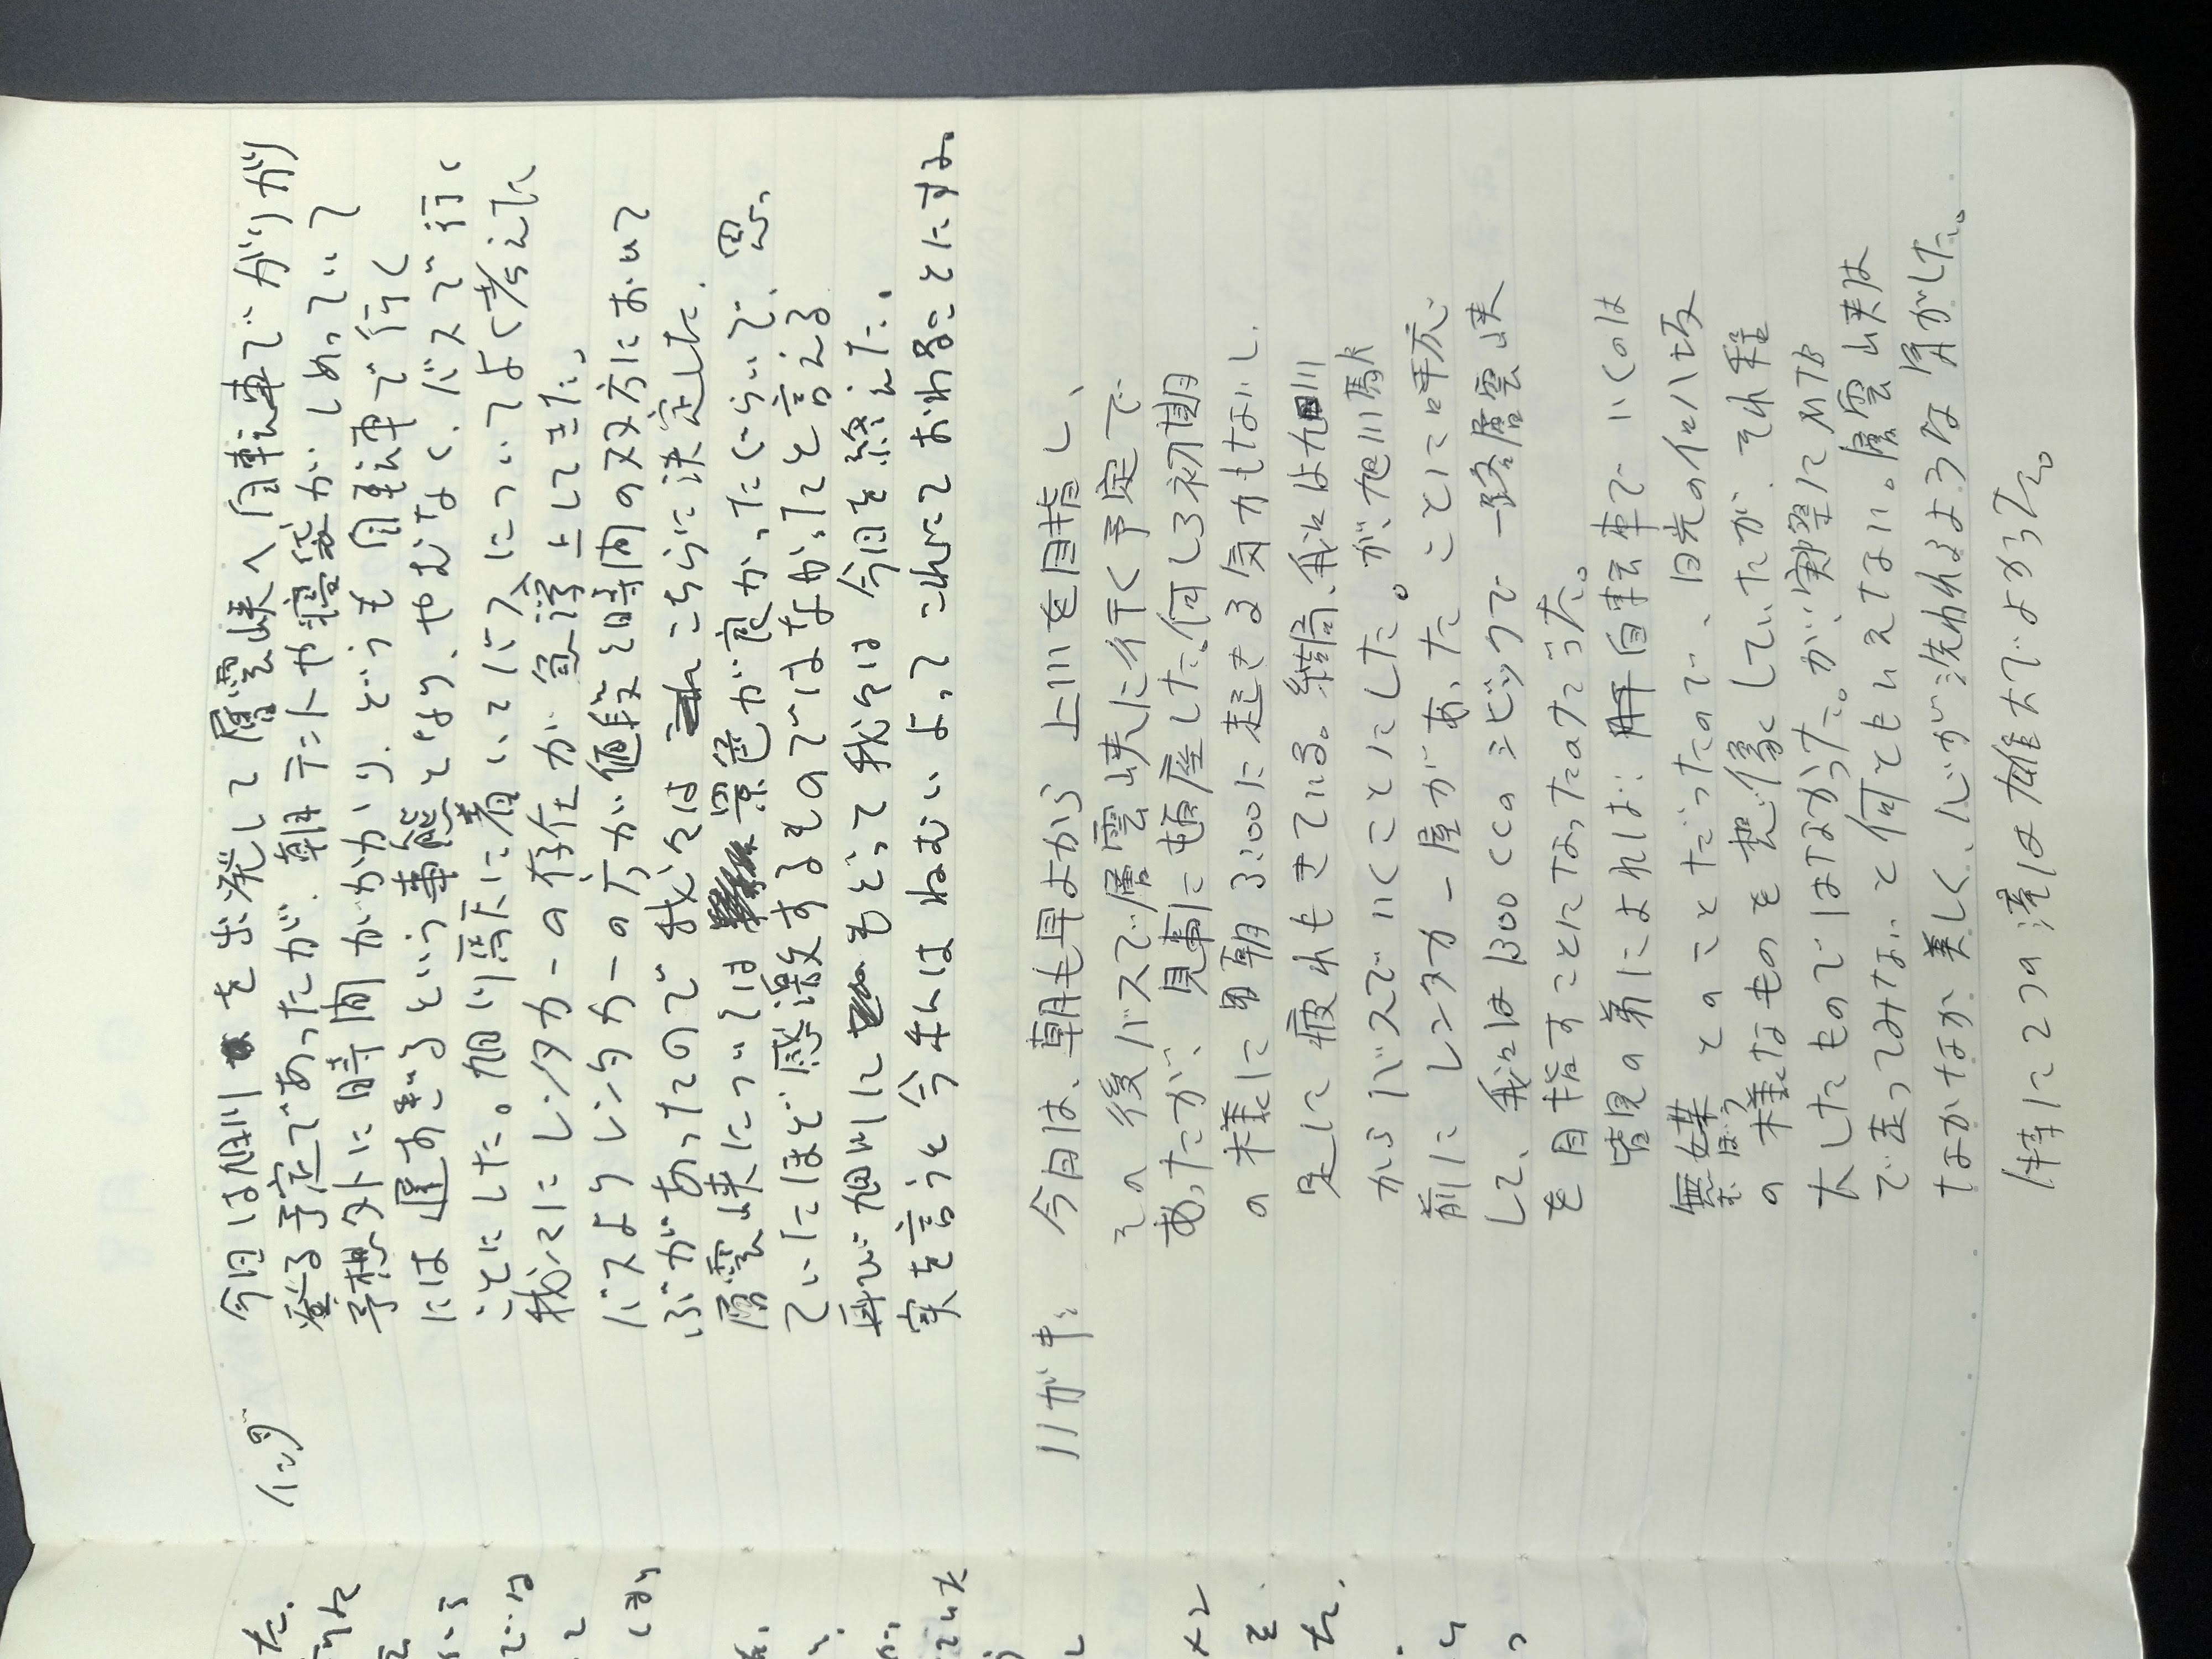 イング
今日は旭川を出発して層雲峡へ自転車でがりがり
登る予定であったが、朝テントや寝袋がしめっていて
予想外に時間がかかり、どうも自転車で行く
には遅すぎるという事態となり、やむなく、バスで行く
ことにした。旭川駅に着いてバスについてよく考えた
我々にレンタカーの存在が急浮上してきた。
バスよりレンタカーの方が値段と時間の双方において
ぶがあったので我々はこちらに決定した。
層雲峡については景色が良かったくらいで、思
ていたほど感激するものではなかったと言える
再び旭川にもどって我々は今日を終えた。
実を言うと今年んはねむいよってこれにておわることにする
ハガキ:
今日は、朝も早よから上川を目指し、
その後バスで層雲峡に行く予定で
あったが、見事に頓挫した。何しろ初期
の様に早朝3:00に起きる気力もないし、
足に疲れもきている。結局、我々は旭川
からバスでいくことにした。が、旭川駅
前にレンタカー屋があったことに呼応
して、我々は1300ccのシビックで一路層雲峡
を目指すことになったのだった。
皆見の弟によれば、自転車でいくのは
無謀とのことだったので、日光のイロハ坂
の様なものを想像していたが、それ程
大したものではなかった。が、実際にMTB
で走ってみないと何ともいえない。層雲峡は
なかなか美しく、心が洗われるような気がした。
特に2つの滝は雄大でよかった。